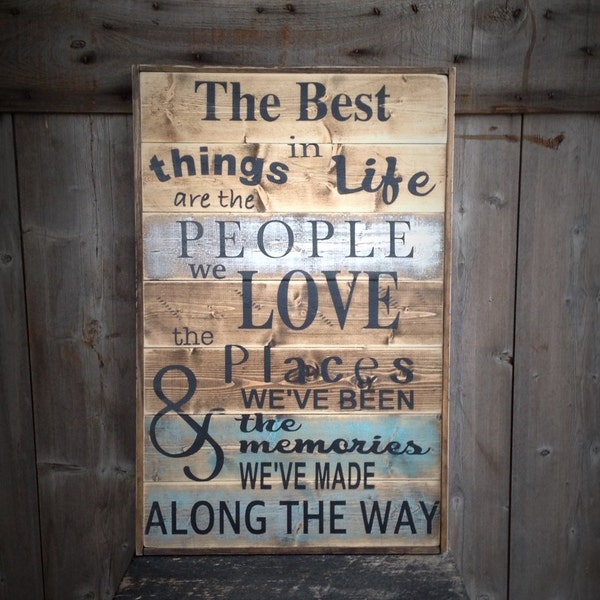 The Best
in
things Life
are the
PEOPLE
we
LOVE
the
Places
WE'VE BEEN
& the
memories
WE'VE MADE
ALONG THE WAY